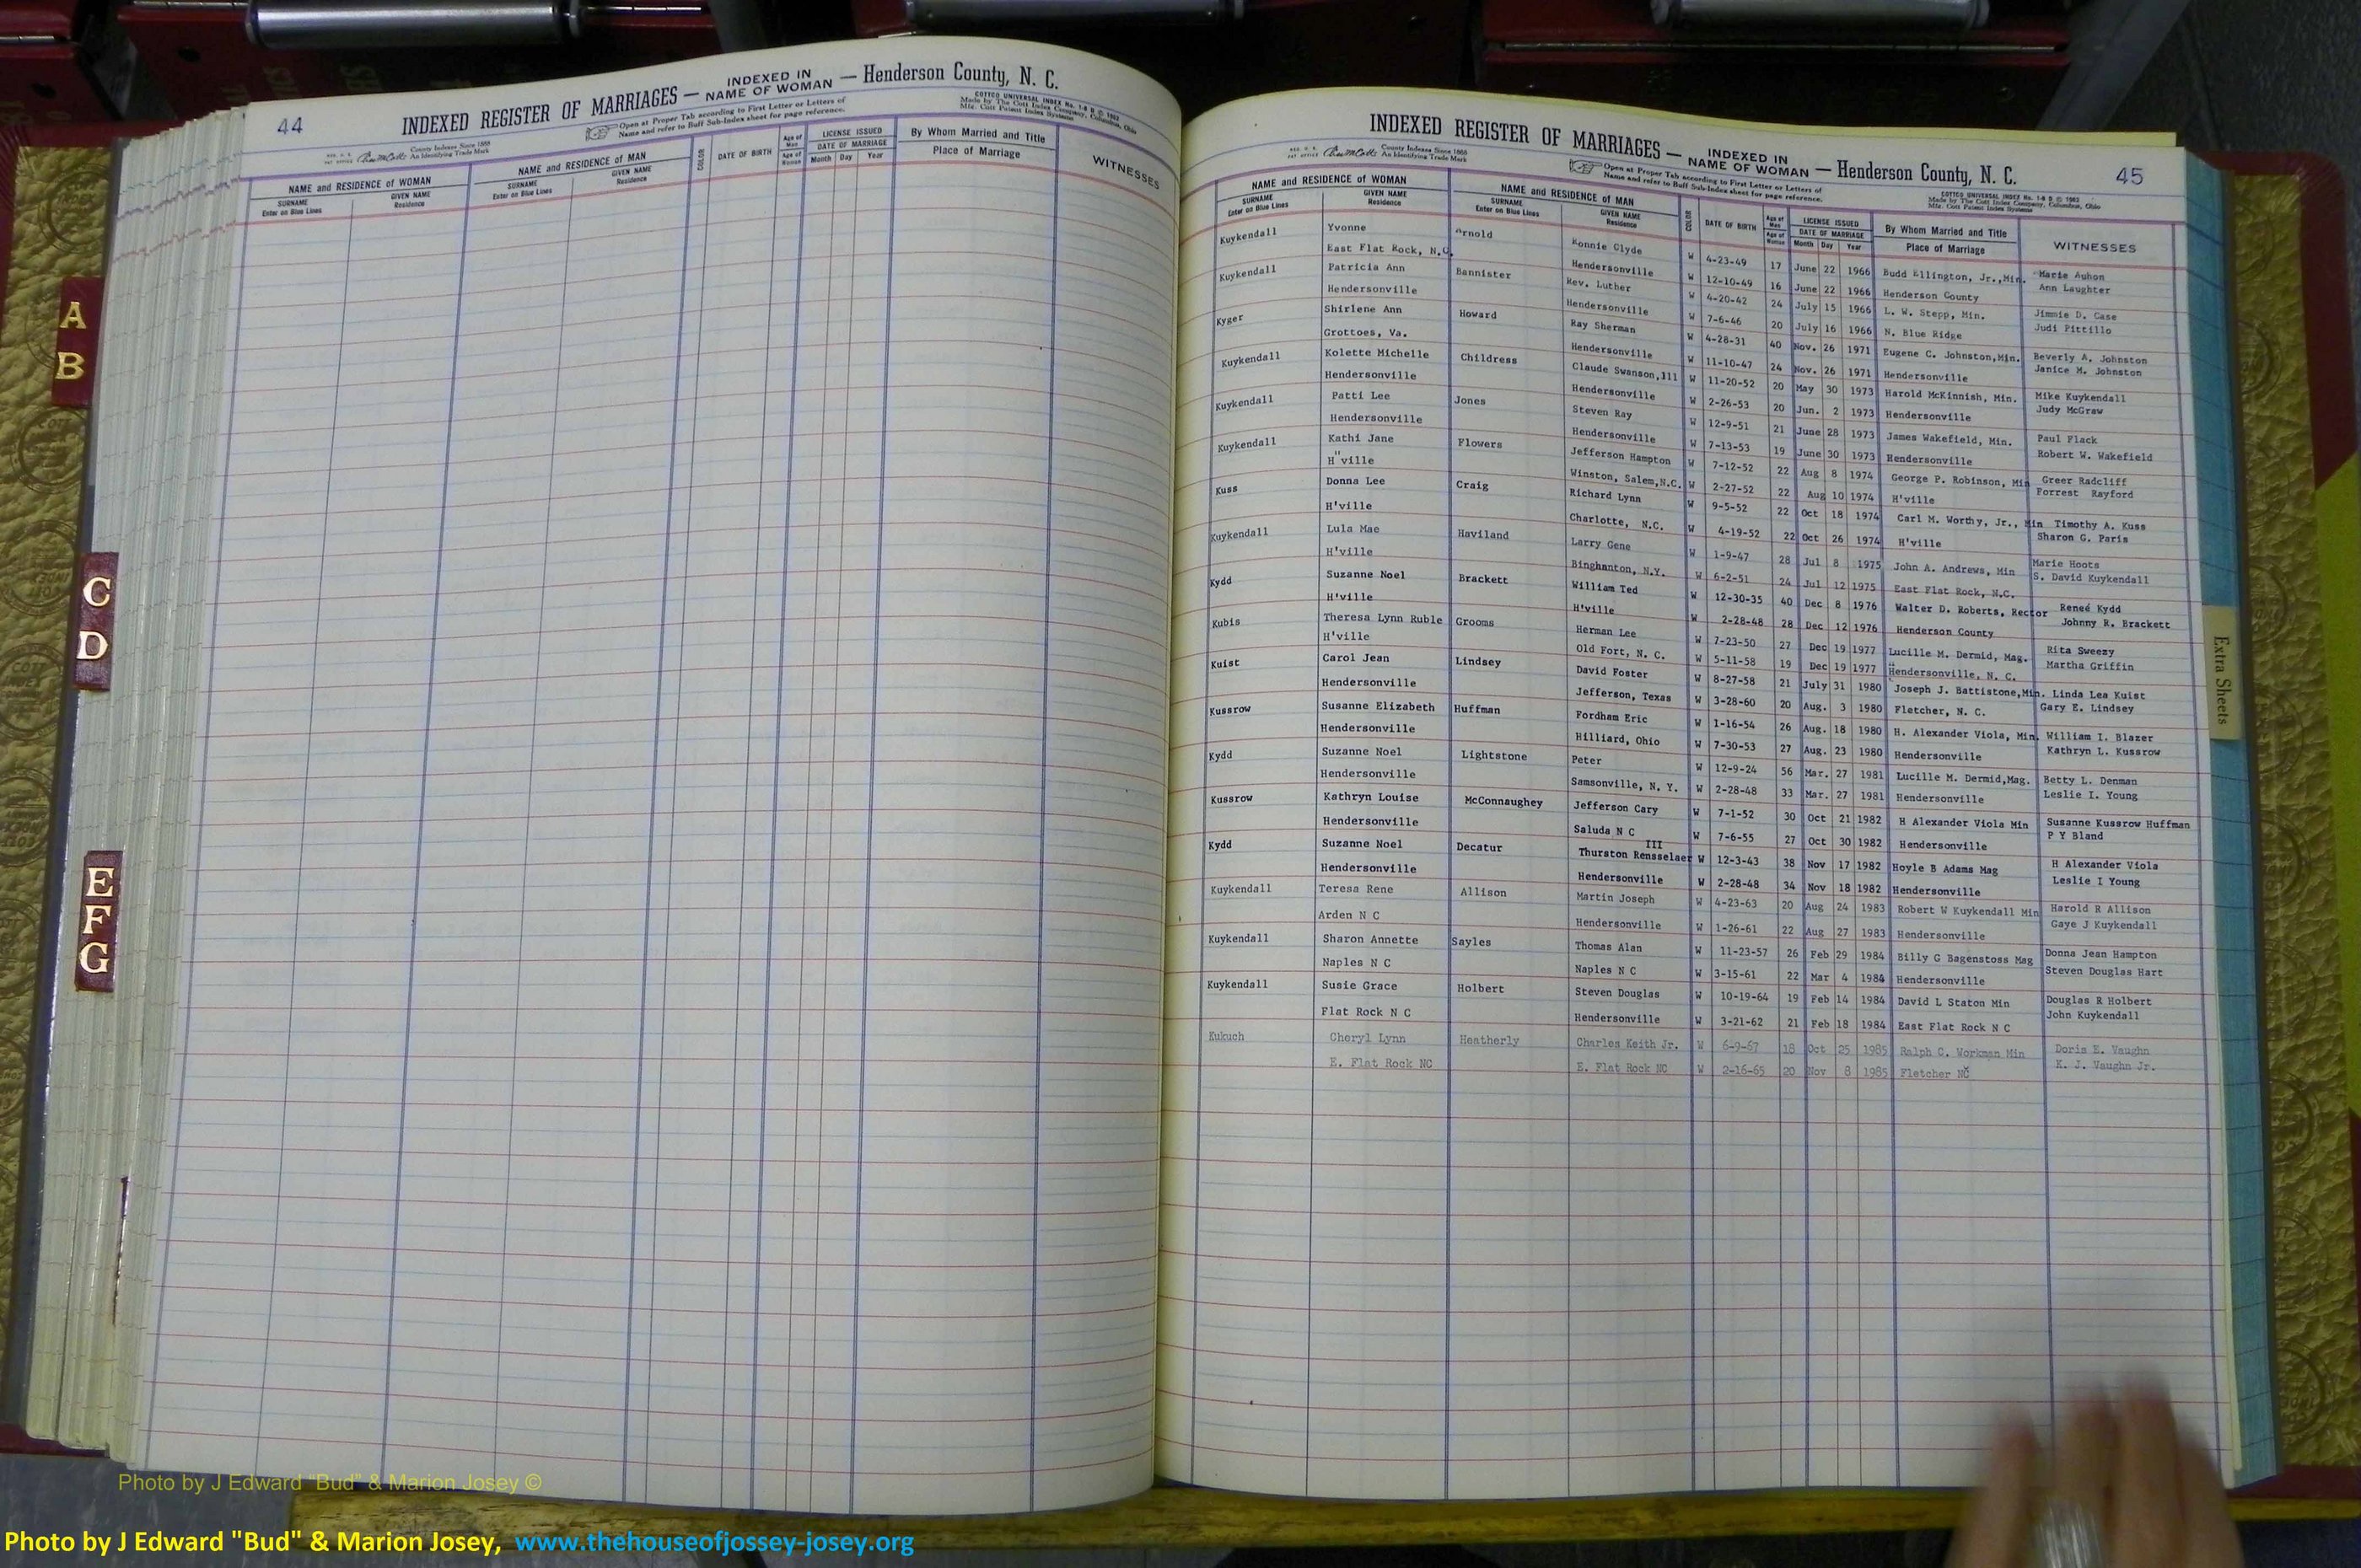 44
INDEXED REGISTER OF MARRIAGES — INDEXED IN NAME OF WOMAN — Henderson County, N. C.
County Indexes Since 1888
An Identifying Trade Mark
Open at Proper Tab according to First Letter or Letters of
Name and refer to Buff Sub-Index sheet for page reference.
COTTCO UNIVERSAL INDEX No. 1-8 D © 1963
Made by The Cott Index Company, Columbus, Ohio
Mfr. Cott Patent Index Systems
NAME and RESIDENCE of WOMAN NAME and RESIDENCE of MAN COLOR DATE OF BIRTH Age of Man LICENSE ISSUED By Whom Married and Title WITNESSES
SURNAME GIVEN NAME SURNAME GIVEN NAME Age of Woman DATE OF MARRIAGE Place of Marriage
Enter on Blue Lines Residence Enter on Blue Lines Residence Month Day Year
A
B
C
D
E
F
G
INDEXED REGISTER OF MARRIAGES — INDEXED IN NAME OF WOMAN — Henderson County, N. C. 45
County Indexes Since 1888
An Identifying Trade Mark
Open at Proper Tab according to First Letter or Letters of
Name and refer to Buff Sub-Index sheet for page reference.
COTTCO UNIVERSAL INDEX No. 1-8 D © 1963
Made by The Cott Index Company, Columbus, Ohio
Mfr. Cott Patent Index Systems
NAME and RESIDENCE of WOMAN NAME and RESIDENCE of MAN COLOR DATE OF BIRTH Age of Man LICENSE ISSUED By Whom Married and Title WITNESSES
SURNAME GIVEN NAME SURNAME GIVEN NAME Age of Woman DATE OF MARRIAGE Place of Marriage
Enter on Blue Lines Residence Enter on Blue Lines Residence Month Day Year
Kuykendall Yvonne Arnold Ronnie Clyde W 4-23-49 17 June 22 1966 Budd Ellington, Jr.,Min. Marie Auhon
East Flat Rock, N.C. Hendersonville W 12-10-49 16 June 22 1966 Henderson County Ann Laughter
Kuykendall Patricia Ann Bannister Rev. Luther W 4-20-42 24 July 15 1966 L. W. Stepp, Min. Jimmie D. Case
Hendersonville Hendersonville W 7-6-46 20 July 16 1966 N. Blue Ridge Judi Pittillo
Kyger Shirlene Ann Howard Ray Sherman W 4-28-31 40 Nov. 26 1971 Eugene C. Johnston,Min. Beverly A. Johnston
Grottoes, Va. Hendersonville W 11-10-47 24 Nov. 26 1971 Hendersonville Janice M. Johnston
Kuykendall Kolette Michelle Childress Claude Swanson,111 W 11-20-52 20 May 30 1973 Harold McKinnish, Min. Mike Kuykendall
Hendersonville Hendersonville W 2-26-53 20 Jun. 2 1973 Hendersonville Judy McGraw
Kuykendall Patti Lee Jones Steven Ray W 12-9-51 21 June 28 1973 James Wakefield, Min. Paul Flack
Hendersonville Hendersonville W 7-13-53 19 June 30 1973 Hendersonville Robert W. Wakefield
Kuykendall Kathi Jane Flowers Jefferson Hampton W 7-12-52 22 Aug 8 1974 George P. Robinson, Min Greer Radcliff
H"ville Winston, Salem,N.C. W 2-27-52 22 Aug 10 1974 H'ville Forrest Rayford
Kuss Donna Lee Craig Richard Lynn W 9-5-52 22 Oct 18 1974 Carl M. Worthy, Jr., Min Timothy A. Kuss
H'ville Charlotte, N.C. W 4-19-52 22 Oct 26 1974 H'ville Sharon G. Paris
Kuykendall Lula Mae Haviland Larry Gene W 1-9-47 28 Jul 8 1975 John A. Andrews, Min Marie Hoots
H'ville Binghanton, N.Y. W 6-2-51 24 Jul 12 1975 East Flat Rock, N.C. S. David Kuykendall
Kydd Suzanne Noel Brackett William Ted W 12-30-35 40 Dec 8 1976 Walter D. Roberts, Rector Reneé Kydd
H'ville H'ville W 2-28-48 28 Dec 12 1976 Henderson County Johnny R. Brackett
Kubis Theresa Lynn Ruble Grooms Herman Lee W 7-23-50 27 Dec 19 1977 Lucille M. Dermid, Mag. Rita Sweezy
H'ville Old Fort, N. C. W 5-11-58 19 Dec 19 1977 Hendersonville, N. C. Martha Griffin
Kuist Carol Jean Lindsey David Foster W 8-27-58 21 July 31 1980 Joseph J. Battistone,Min. Linda Lea Kuist
Hendersonville Jefferson, Texas W 3-28-60 20 Aug. 3 1980 Fletcher, N. C. Gary E. Lindsey
Kussrow Susanne Elizabeth Huffman Fordham Eric W 1-16-54 26 Aug. 18 1980 H. Alexander Viola, Min. William I. Blazer
Hendersonville Hilliard, Ohio W 7-30-53 27 Aug. 23 1980 Hendersonville Kathryn L. Kussrow
Kydd Suzanne Noel Lightstone Peter W 12-9-24 56 Mar. 27 1981 Lucille M. Dermid,Mag. Betty L. Denman
Hendersonville Samsonville, N. Y. W 2-28-48 33 Mar. 27 1981 Hendersonville Leslie I. Young
Kussrow Kathryn Louise McConnaughey Jefferson Cary W 7-1-52 30 Oct 21 1982 H Alexander Viola Min Susanne Kussrow Huffman
Hendersonville Saluda N C W 7-6-55 27 Oct 30 1982 Hendersonville P Y Bland
Kydd Suzanne Noel Decatur Thurston Rensselaer III W 12-3-43 38 Nov 17 1982 Hoyle B Adams Mag H Alexander Viola
Hendersonville Hendersonville W 2-28-48 34 Nov 18 1982 Hendersonville Leslie I Young
Kuykendall Teresa Rene Allison Martin Joseph W 4-23-63 20 Aug 24 1983 Robert W Kuykendall Min Harold R Allison
Arden N C Hendersonville W 1-26-61 22 Aug 27 1983 Hendersonville Gaye J Kuykendall
Kuykendall Sharon Annette Sayles Thomas Alan W 11-23-57 26 Feb 29 1984 Billy G Bagenstoss Mag Donna Jean Hampton
Naples N C Naples N C W 3-15-61 22 Mar 4 1984 Hendersonville Steven Douglas Hart
Kuykendall Susie Grace Holbert Steven Douglas W 10-19-64 19 Feb 14 1984 David L Staton Min Douglas R Holbert
Flat Rock N C Hendersonville W 3-21-62 21 Feb 18 1984 East Flat Rock N C John Kuykendall
Kukuch Cheryl Lynn Heatherly Charles Keith Jr. W 6-9-67 18 Oct 25 1985 Ralph C. Workman Min Doris E. Vaughn
E. Flat Rock NC E. Flat Rock NC W 2-16-65 20 Nov 8 1985 Fletcher NC K. J. Vaughn Jr.
Extra Sheets
Photo by J Edward "Bud" & Marion Josey ©
Photo by J Edward "Bud" & Marion Josey, www.thehouseofjossey-josey.org